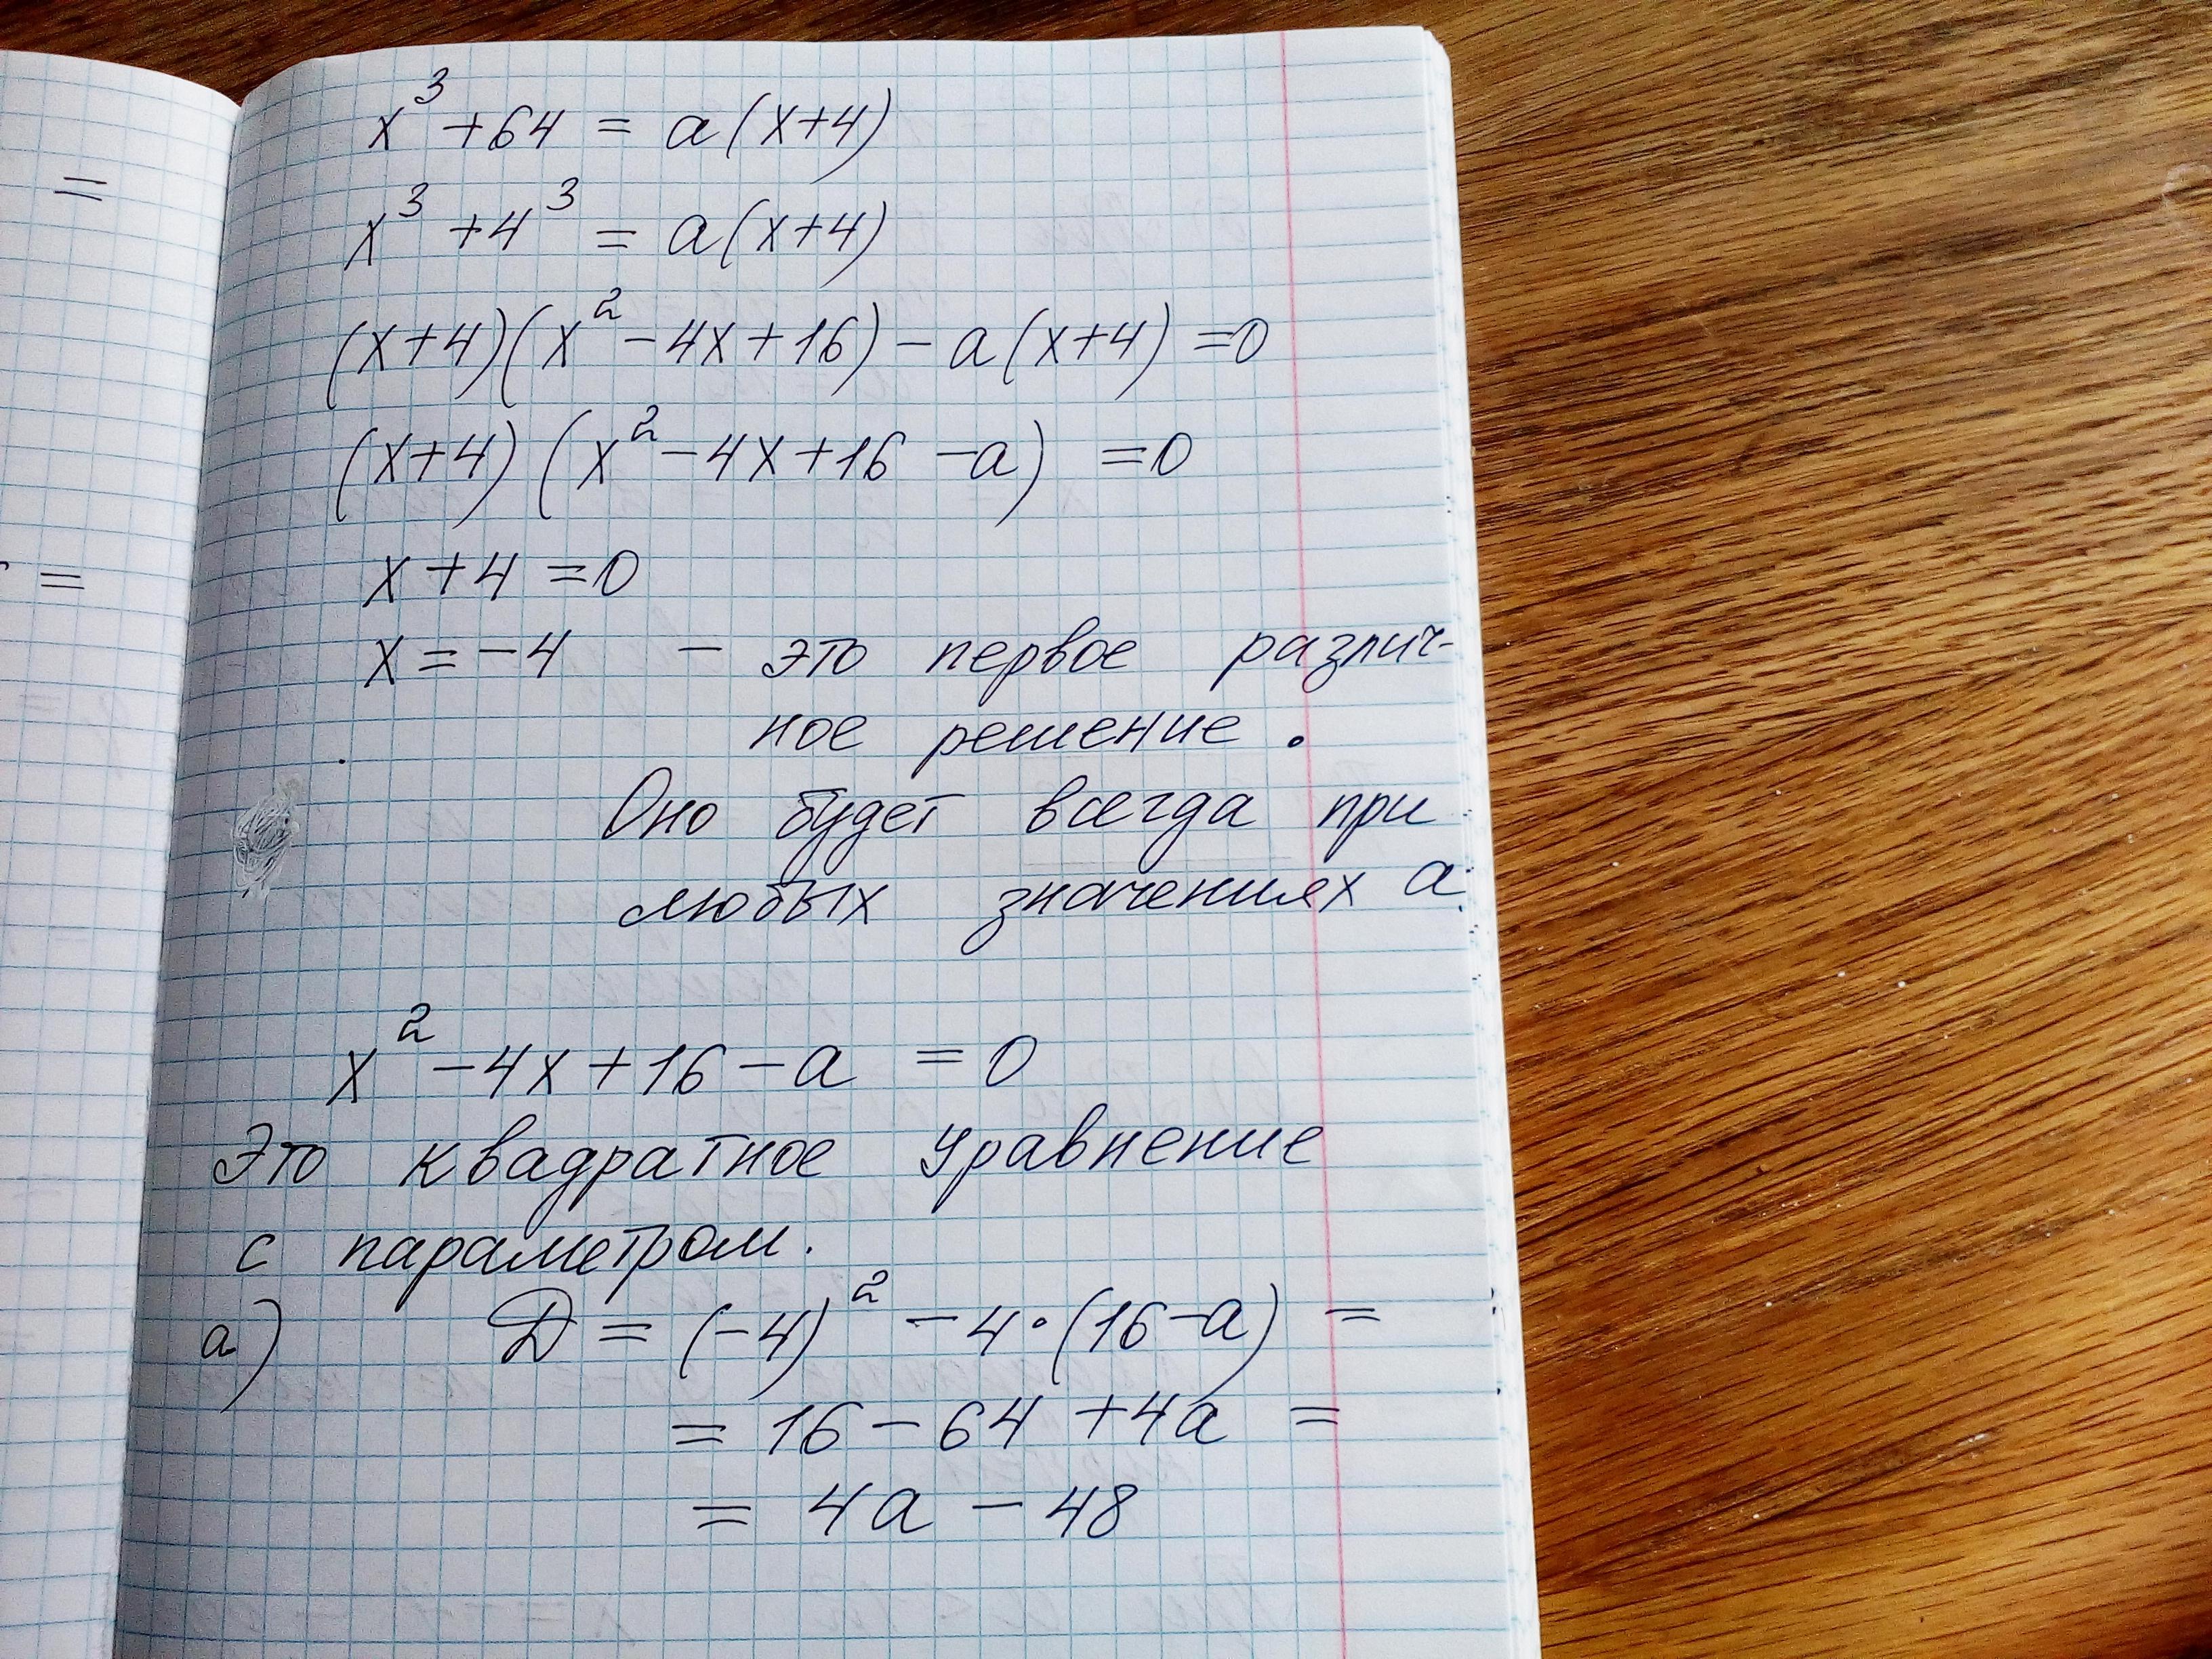 =
=
x³ + 64 = a(x+4)
x³ + 4³ = a(x+4)
(x+4)(x² - 4x + 16) - a(x+4) = 0
(x+4)(x² - 4x + 16 - a) = 0
x + 4 = 0
x = -4 - это первое различ-
ное решение.
Оно будет всегда при
любых значениях a.
x² - 4x + 16 - a = 0
Это квадратное уравнение
с параметром.
а) D = (-4)² - 4·(16-a) =
= 16 - 64 + 4a =
= 4a - 48